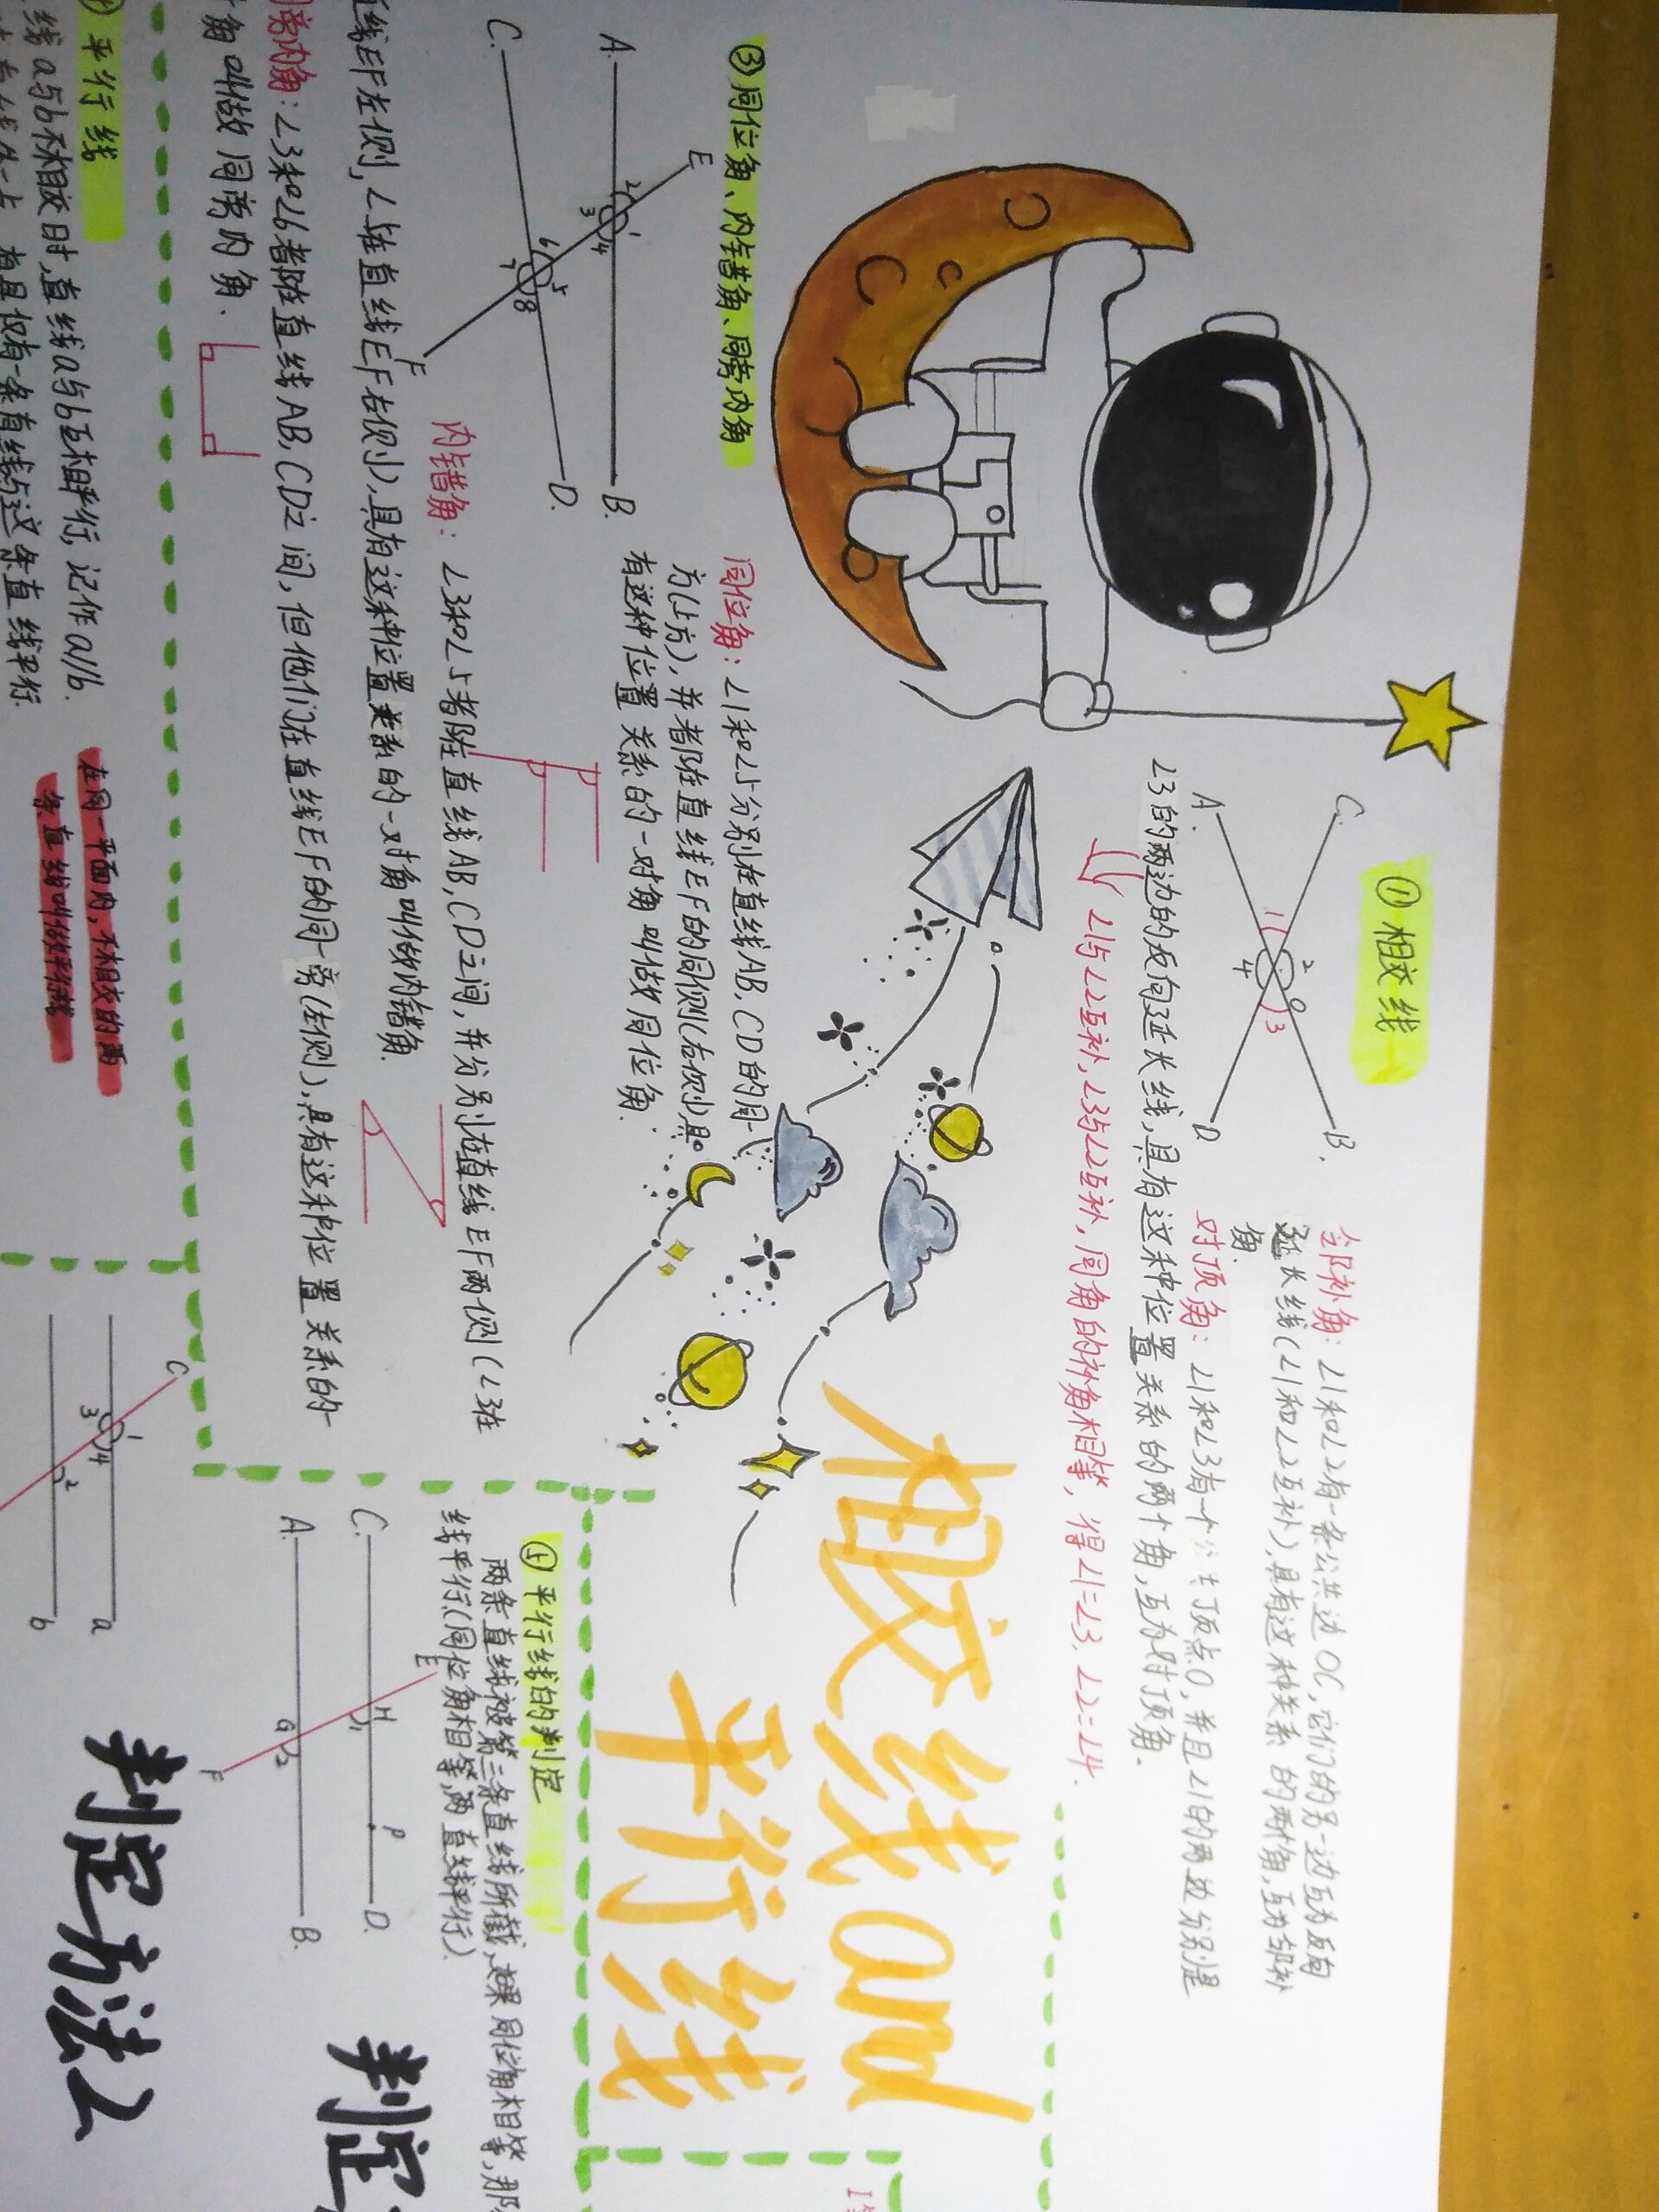 ①相交线
C.
B.
A.
D
O
1
2
3
4
邻补角：∠1和∠2有一条公共边OC，它们的另一边互为反向
延长线（∠1和∠2互补），具有这种关系的两个角，互为邻补
角.
对顶角：∠1和∠3有一个公共顶点O，并且∠1的两边分别是
∠3的两边的反向延长线，具有这种位置关系的两个角，互为对顶角.
∠1与∠2互补，∠3与∠2互补，同角的补角相等，得∠1=∠3. ∠2=∠4.
相交线and
平行线
③同位角、内错角、同旁内角
E
A.
B.
C.
D.
F
1
2
3
4
5
6
7
8
同位角：∠1和∠5分别在直线AB，CD的同一
方(上方)，并都在直线EF的同侧(右侧)，具
有这种位置关系的一对角叫做同位角.
内错角：∠3和∠5都在直线AB，CD之间，并分别在直线EF两侧（∠3在
直线EF左侧，∠5在直线EF右侧），具有这种位置关系的一对角叫做内错角.
同旁内角：∠3和∠6都在直线AB，CD之间，但他们在直线EF的同一旁(左侧)，具有这种位置关系的一
对角叫做同旁内角.
平行线
线a与b不相交时，直线a与b互相平行，记作a//b.
有且仅有一条直线与这条直线平行.
在同一平面内，不相交的两
条直线叫做平行线
⑤平行线的判定
两条直线被第三条直线所截，如果同位角相等，那
线平行(同位角相等，两直线平行).
E
C.
H
P
D.
A.
G
B.
F
1
2
判定
C
a
b
1
2
3
4
判定方法2